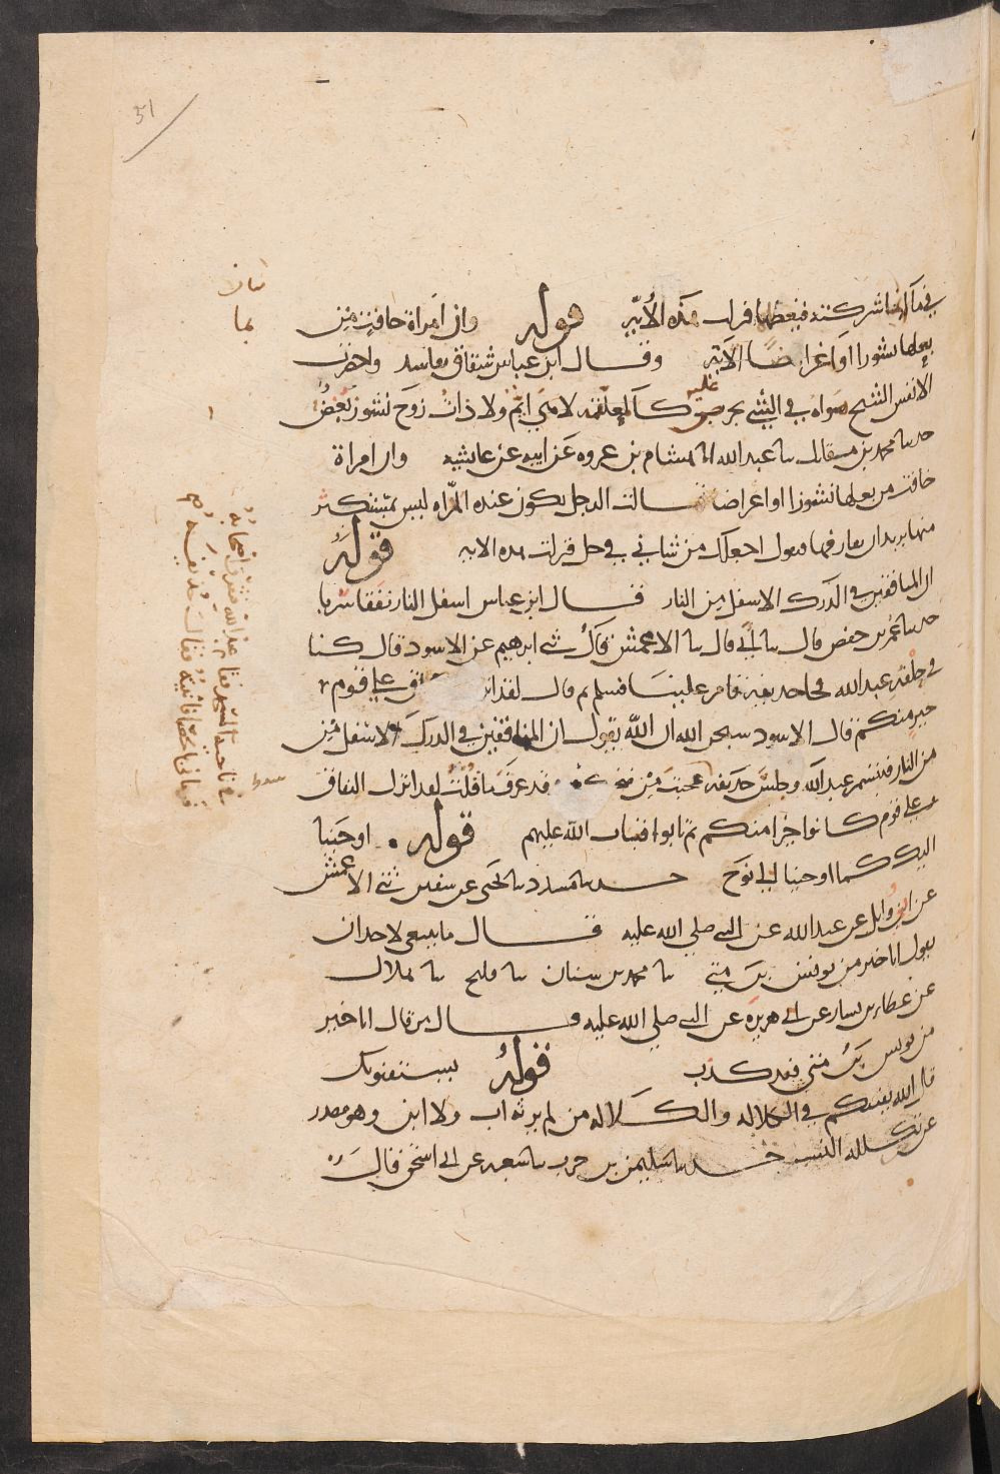 51
في ماله بما شركته فيعضلها فنزلت هذه الاية قوله وان امراة خافت من
بعلها نشوزا او اعراضا الاية وقال ابن عباس شقاق تفاسد واحضرت
الانفس الشح هواه في الشي يحرص عليه كالمعلقة لا هي ايم ولا ذات زوج نشوز بغض
حدثنا محمد بن مقاتل ثنا عبد الله انا هشام بن عروه عن ابيه عن عائشه وان امراة
خافت من بعلها نشوزا او اعراضا قالت الرجل يكون عنده المراه ليس بمستكثر
منها يريد ان يفارقها فتقول اجعلك من شاني في حل فنزلت هذه الايه قوله
ان المنافقين في الدرك الاسفل من النار فقال ابن عباس اسفل النار نفقا سربا
حدثنا عمر بن حفص قال ثنا ابي قال ثنا الاعمش قال ثني ابرهيم عن الاسود قال كنا
في حلقة عبد الله فجا حذيفة قام علينا فسلم ثم قال لقد انزل النفاق على قوم
خير منكم قال الاسود سبحن الله ان الله يقول ان المنافقين في الدرك الاسفل من
من النار فتبسم عبد الله وجلس حذيفة عجبت من ضحكه وقد عرف ما قلت لقد انزل النفاق
على قوم كانوا خيرا منكم ثم تابوا فتاب الله عليهم قوله اوحينا
اليك كما اوحينا الى نوح حدثنا مسدد ثنا يحيى عن سفين ثني الاعمش
عن ابي وايل عن عبد الله عن النبي صلى الله عليه قال ما ينبغي لاحد ان
يقول انا خير من يونس بن متى ثنا محمد بن سنان ثنا فليح ثنا هلال
عن عطاء بن يسار عن ابي هريرة عن النبي صلى الله عليه قال من قال انا خير
من يونس بن متى فقد كذب قوله يستفتونك
قل الله يفتيكم في الكلاله والكلاله من لم يرثه اب ولا ابن وهو مصدر
من تكلله النسب حدثنا سليمن بن حرب ثنا شعبه عن ابي اسحق قال
بما
في ناحية المسجد فقام عبد الله فتفرق اصحابه
فرماني بالحصا فاتيته فقال حذيفة